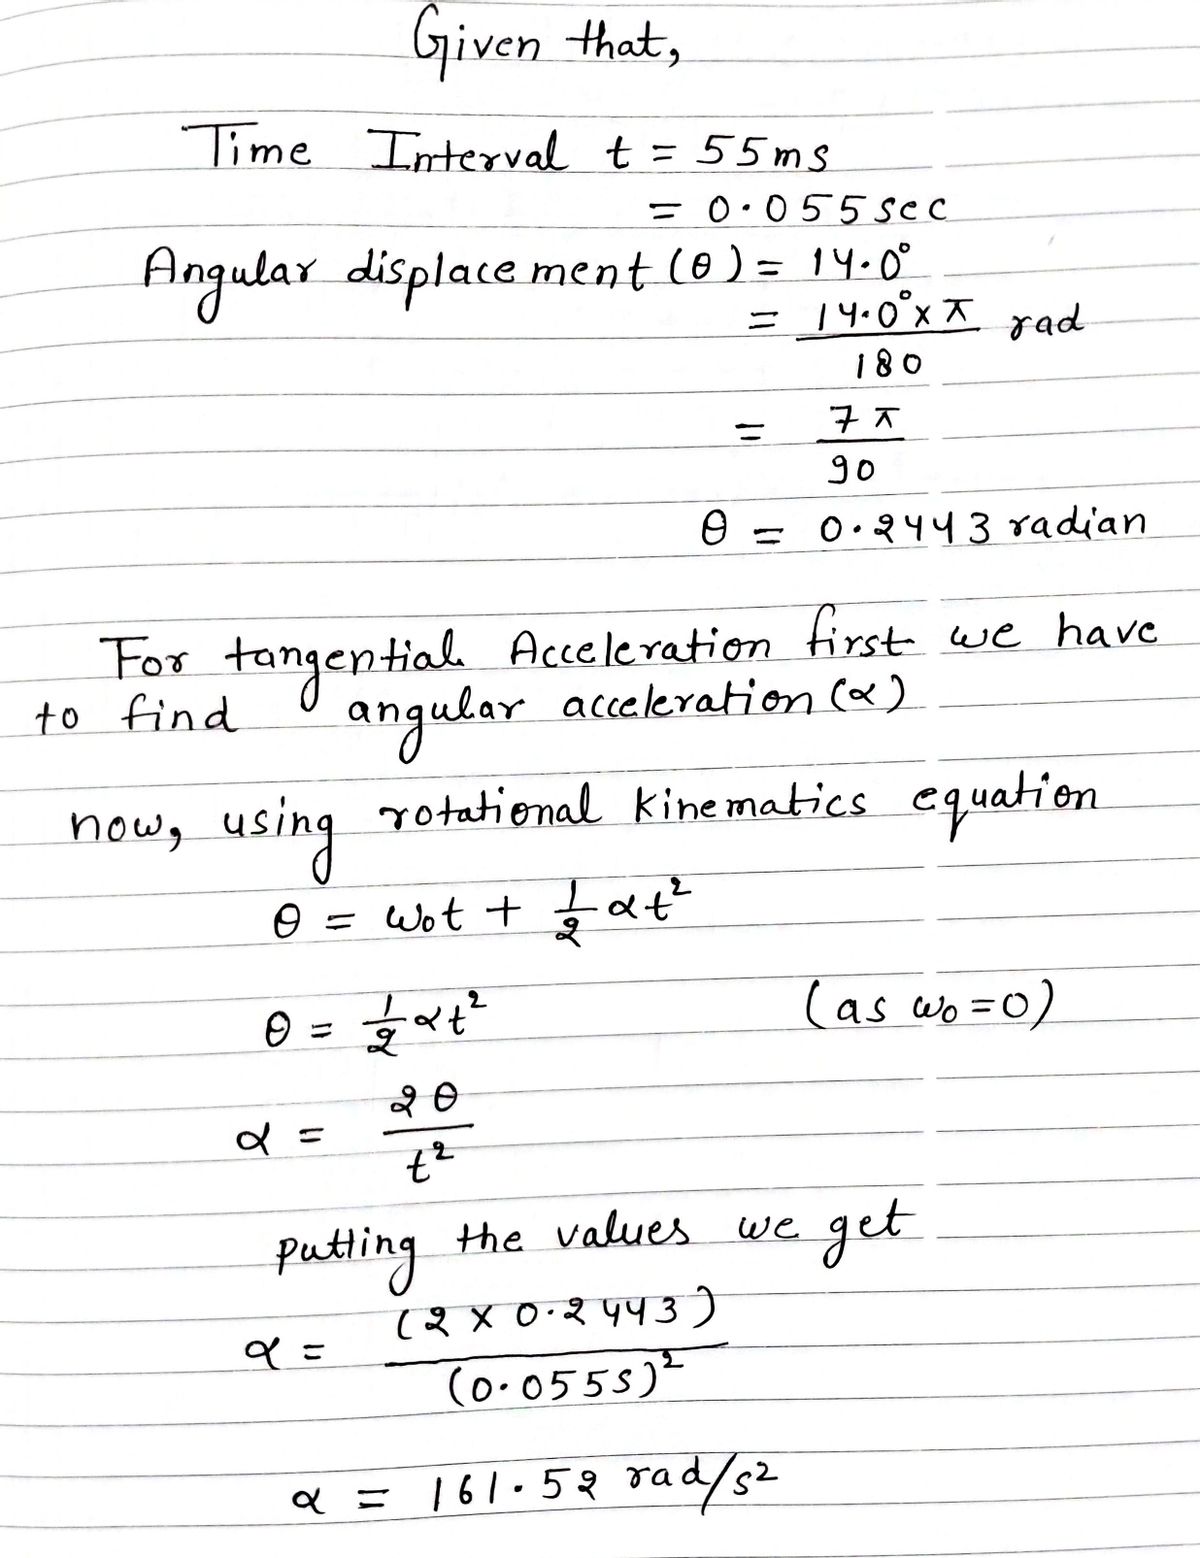 Given that,
Time Interval t = 55ms
= 0.055 sec
Angular displacement (θ) = 14.0°
= 14.0° x π / 180 rad
= 7π / 90
θ = 0.2443 radian
For tangential Acceleration first we have
to find angular acceleration (α)
now, using rotational kinematics equation
θ = ω₀t + 1/2 αt²
θ = 1/2 αt² (as ω₀ = 0)
α = 2θ / t²
putting the values we get
α = (2 x 0.2443) / (0.055s)²
α = 161.52 rad/s²